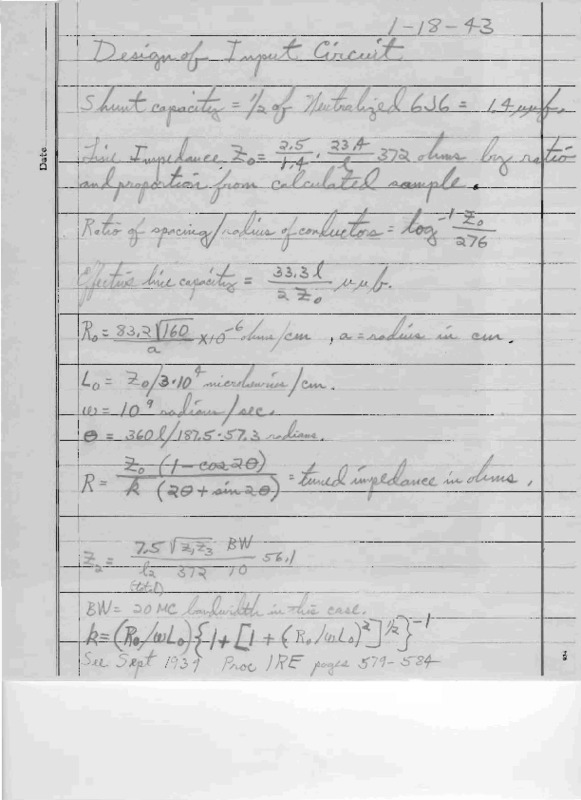 1-18-43
Design of Input Circuit
Shunt capacity = 1/2 of Neutralized 6J6 = 1.4 uuf.
Date
Line Impedance, Z₀ = 2.5/1.4 · 23.4/l 372 ohms by ratio
and proportion from calculated sample.
Ratio of spacing/radius of conductors = log⁻¹ Z₀/276
Effective line capacity = 33.3 l / 2 Z₀ uuf.
R₀ = 83.2√160 / a × 10⁻⁶ ohms/cm, a = radius in cm.
L₀ = Z₀/3·10⁴ microhenries/cm.
ω = 10⁹ radians/sec.
θ = 360 l/187.5·57.3 radians.
R = Z₀ (1 - cos 2θ) / k (2θ + sin 2θ) = tuned impedance in ohms.
Z₂ = 7.5 √Z₁Z₃ BW / l₂ 372 10 56.1
(total)
BW = 20 MC bandwidth in this case.
k = (R₀/ωL₀){1 + [1 + (R₀/ωL₀)²]^1/2}⁻¹
See Sept 1939 Proc IRE pages 579-584